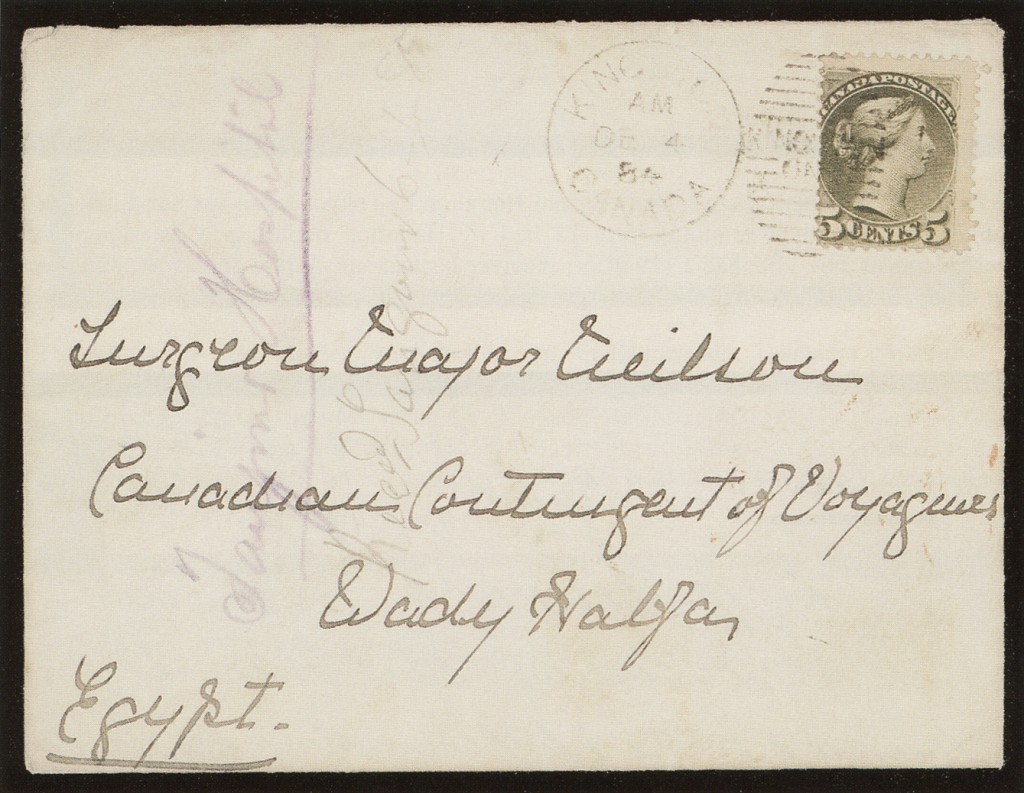 KINGSTON
AM
DE 4
84
CANADA
CANADA POSTAGE
5 CENTS 5
Surgeon Major Neilson
Canadian Contingent of Voyageurs
Wady Halfa,
Egypt.
Hospital
Recd